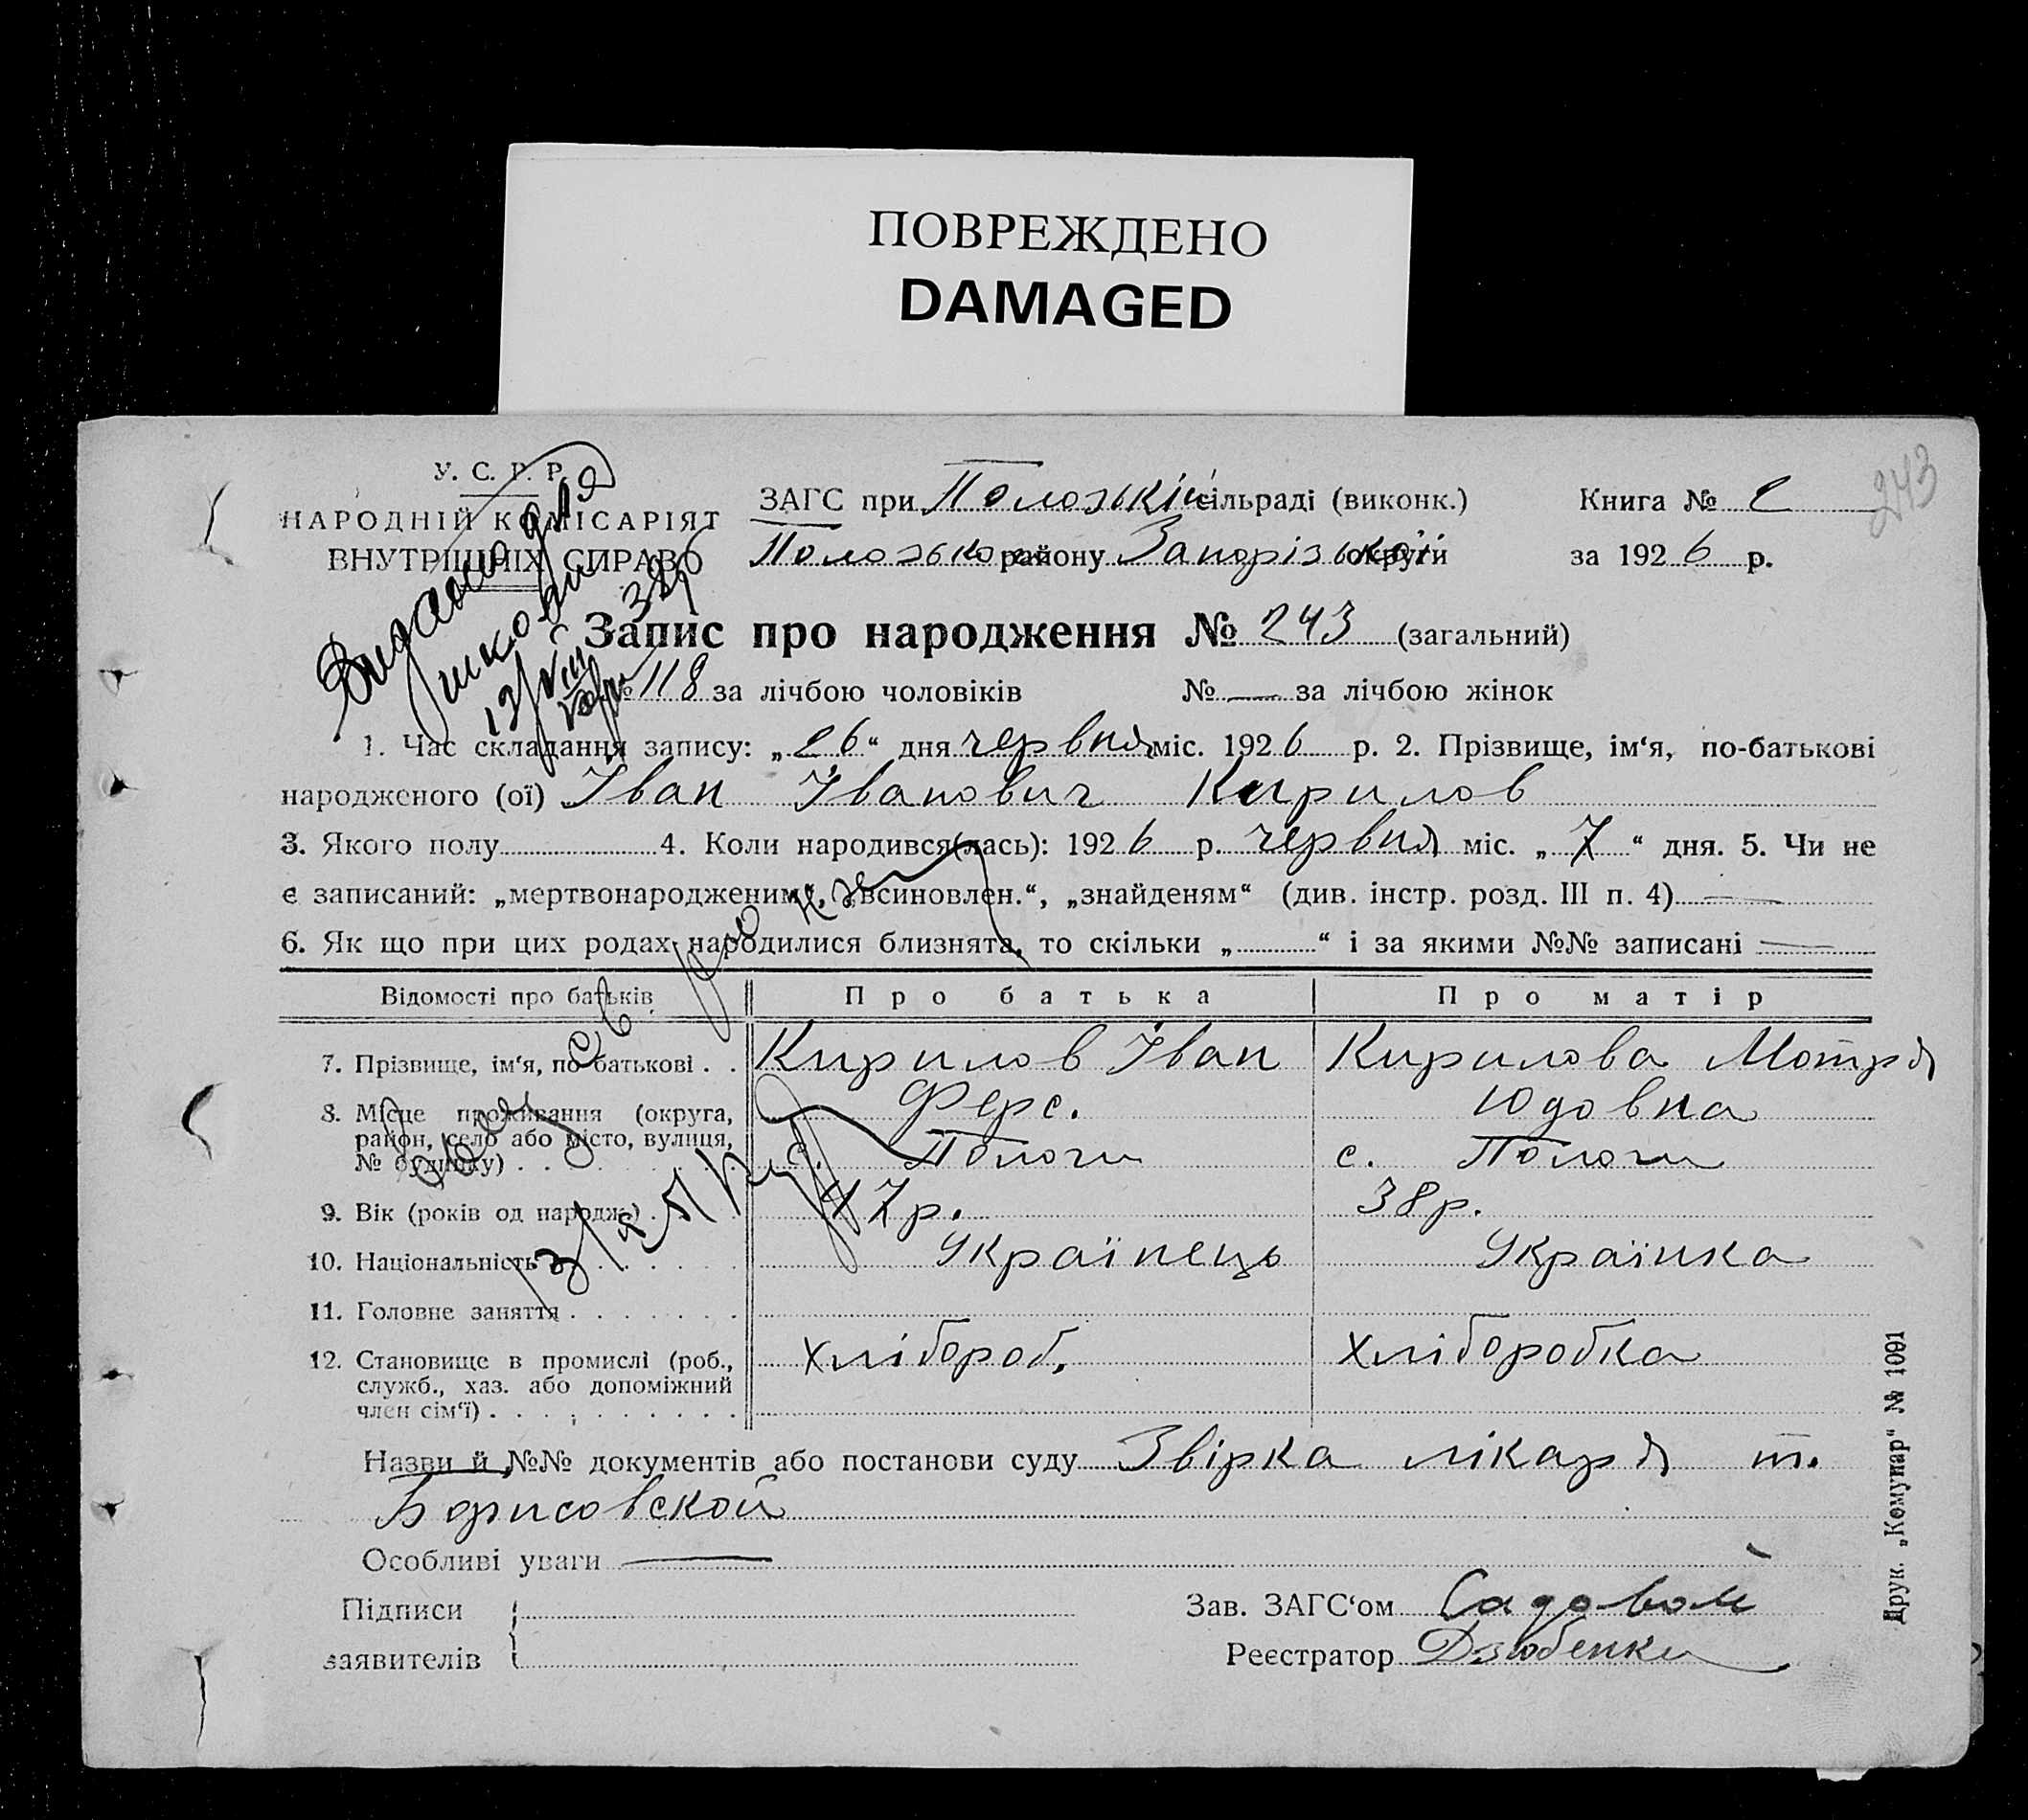 ПОВРЕЖДЕНО
DAMAGED
243
У. С. Р. Р.
НАРОДНІЙ КОМІСАРІЯТ
ВНУТРІШНІХ СПРАВ
ЗАГС при Пологькій сільраді (виконк.)
Книга № 2
Пологького району Запорізької округи
за 1926 р.
Видано для
школи
13/VIII
Запис про народження № 243 (загальний)
№ 118 за лічбою чоловіків № — за лічбою жінок
1. Час складання запису: „26“ дня червня міс. 1926 р. 2. Прізвище, ім‘я, по-батькові
народженого (ої) Іван Іванович Кирилов
3. Якого полу 4. Коли народився(лась): 1926 р. червня міс. „7“ дня. 5. Чи не
є записаний: „мертвонародженим“, „всиновлен.“, „знайденям“ (див. інстр. розд. III п. 4) —
6. Як що при цих родах народилися близнята, то скільки „ “ і за якими №№ записані —
Відомості про батьків Про батька Про матір
7. Прізвище, ім‘я, по батькові . . Кирилов Іван Кирилова Мотря
Ферс. Юдовна
8. Місце проживання (округа,
район, село або місто, вулиця,
№ будинку) . . . с. Пологи с. Пологи
9. Вік (років од народж.) . . . 47р. 38р.
10. Національність . . . Українець Українка
11. Головне заняття . . . . . . .
12. Становище в промислі (роб.,
служб., хаз. або допоміжний
член сім‘ї) . . . . . . . . . . хлібороб. хліборобка
Назви й №№ документів або постанови суду Звірка лікаря т.
Борисовской
Особливі уваги —
Підписи
заявителів
Зав. ЗАГС‘ом Садовой
Реєстратор Дзюбенко
Друк. „Комунар“ № 1091